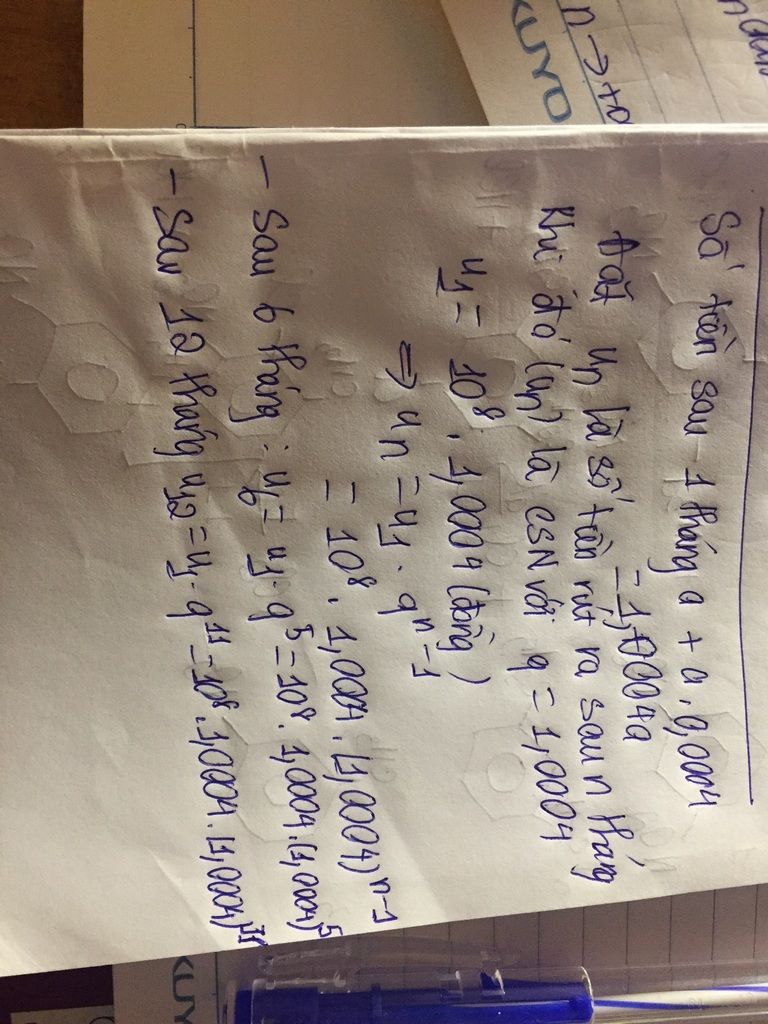 n dun
n → +∞
KUYO
Số tiền sau 1 tháng a + a.0,0004
= 1,0004a
Đặt un là số tiền rút ra sau n tháng
Khi đó (un) là CSN với q = 1,0004
u1 = 10^8 . 1,0004 (đồng)
⇒ un = u1 . q^n-1
= 10^8 . 1,0004 . (1,0004)^n-1
- Sau 6 tháng : u6 = u1 . q^5 = 10^8 . 1,0004 . (1,0004)^5
- Sau 12 tháng u12 = u1 . q^11 = 10^8 . 1,0004 . (1,0004)^11
KUY